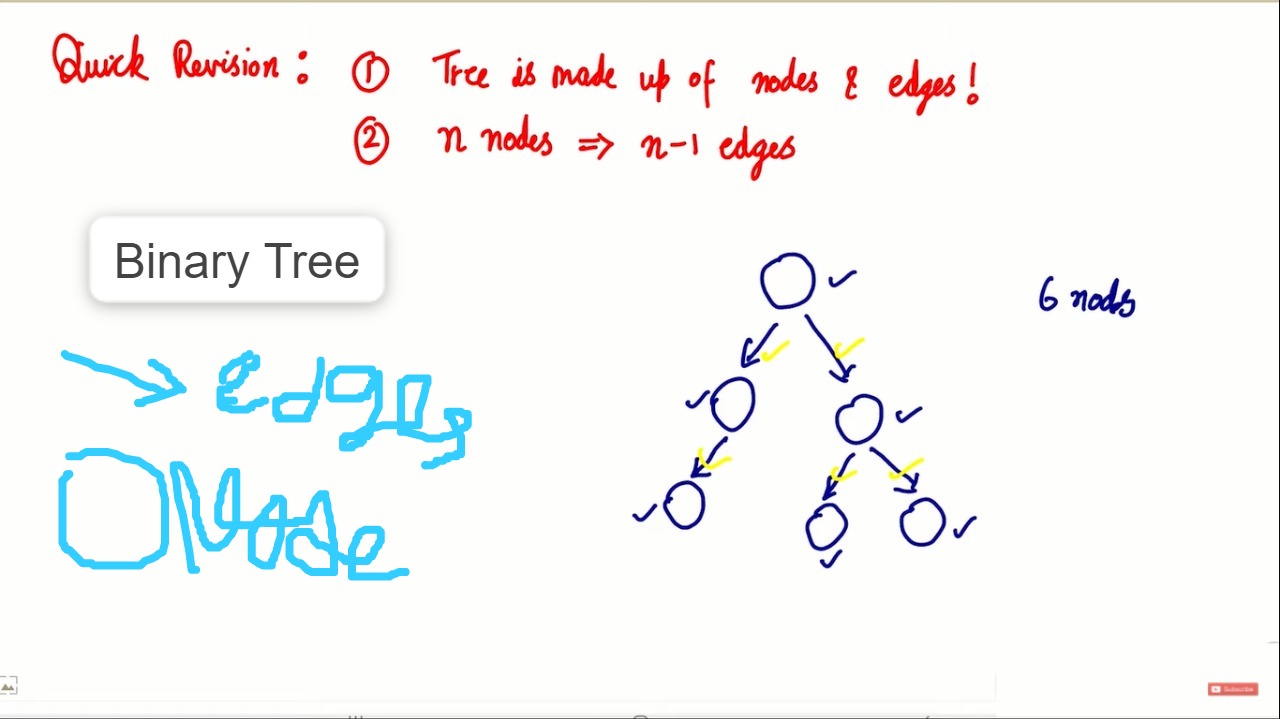 Quick Revision : ① Tree is made up of nodes & edges!
② n nodes => n-1 edges
Binary Tree
6 nodes
edges
Node
Subscribe